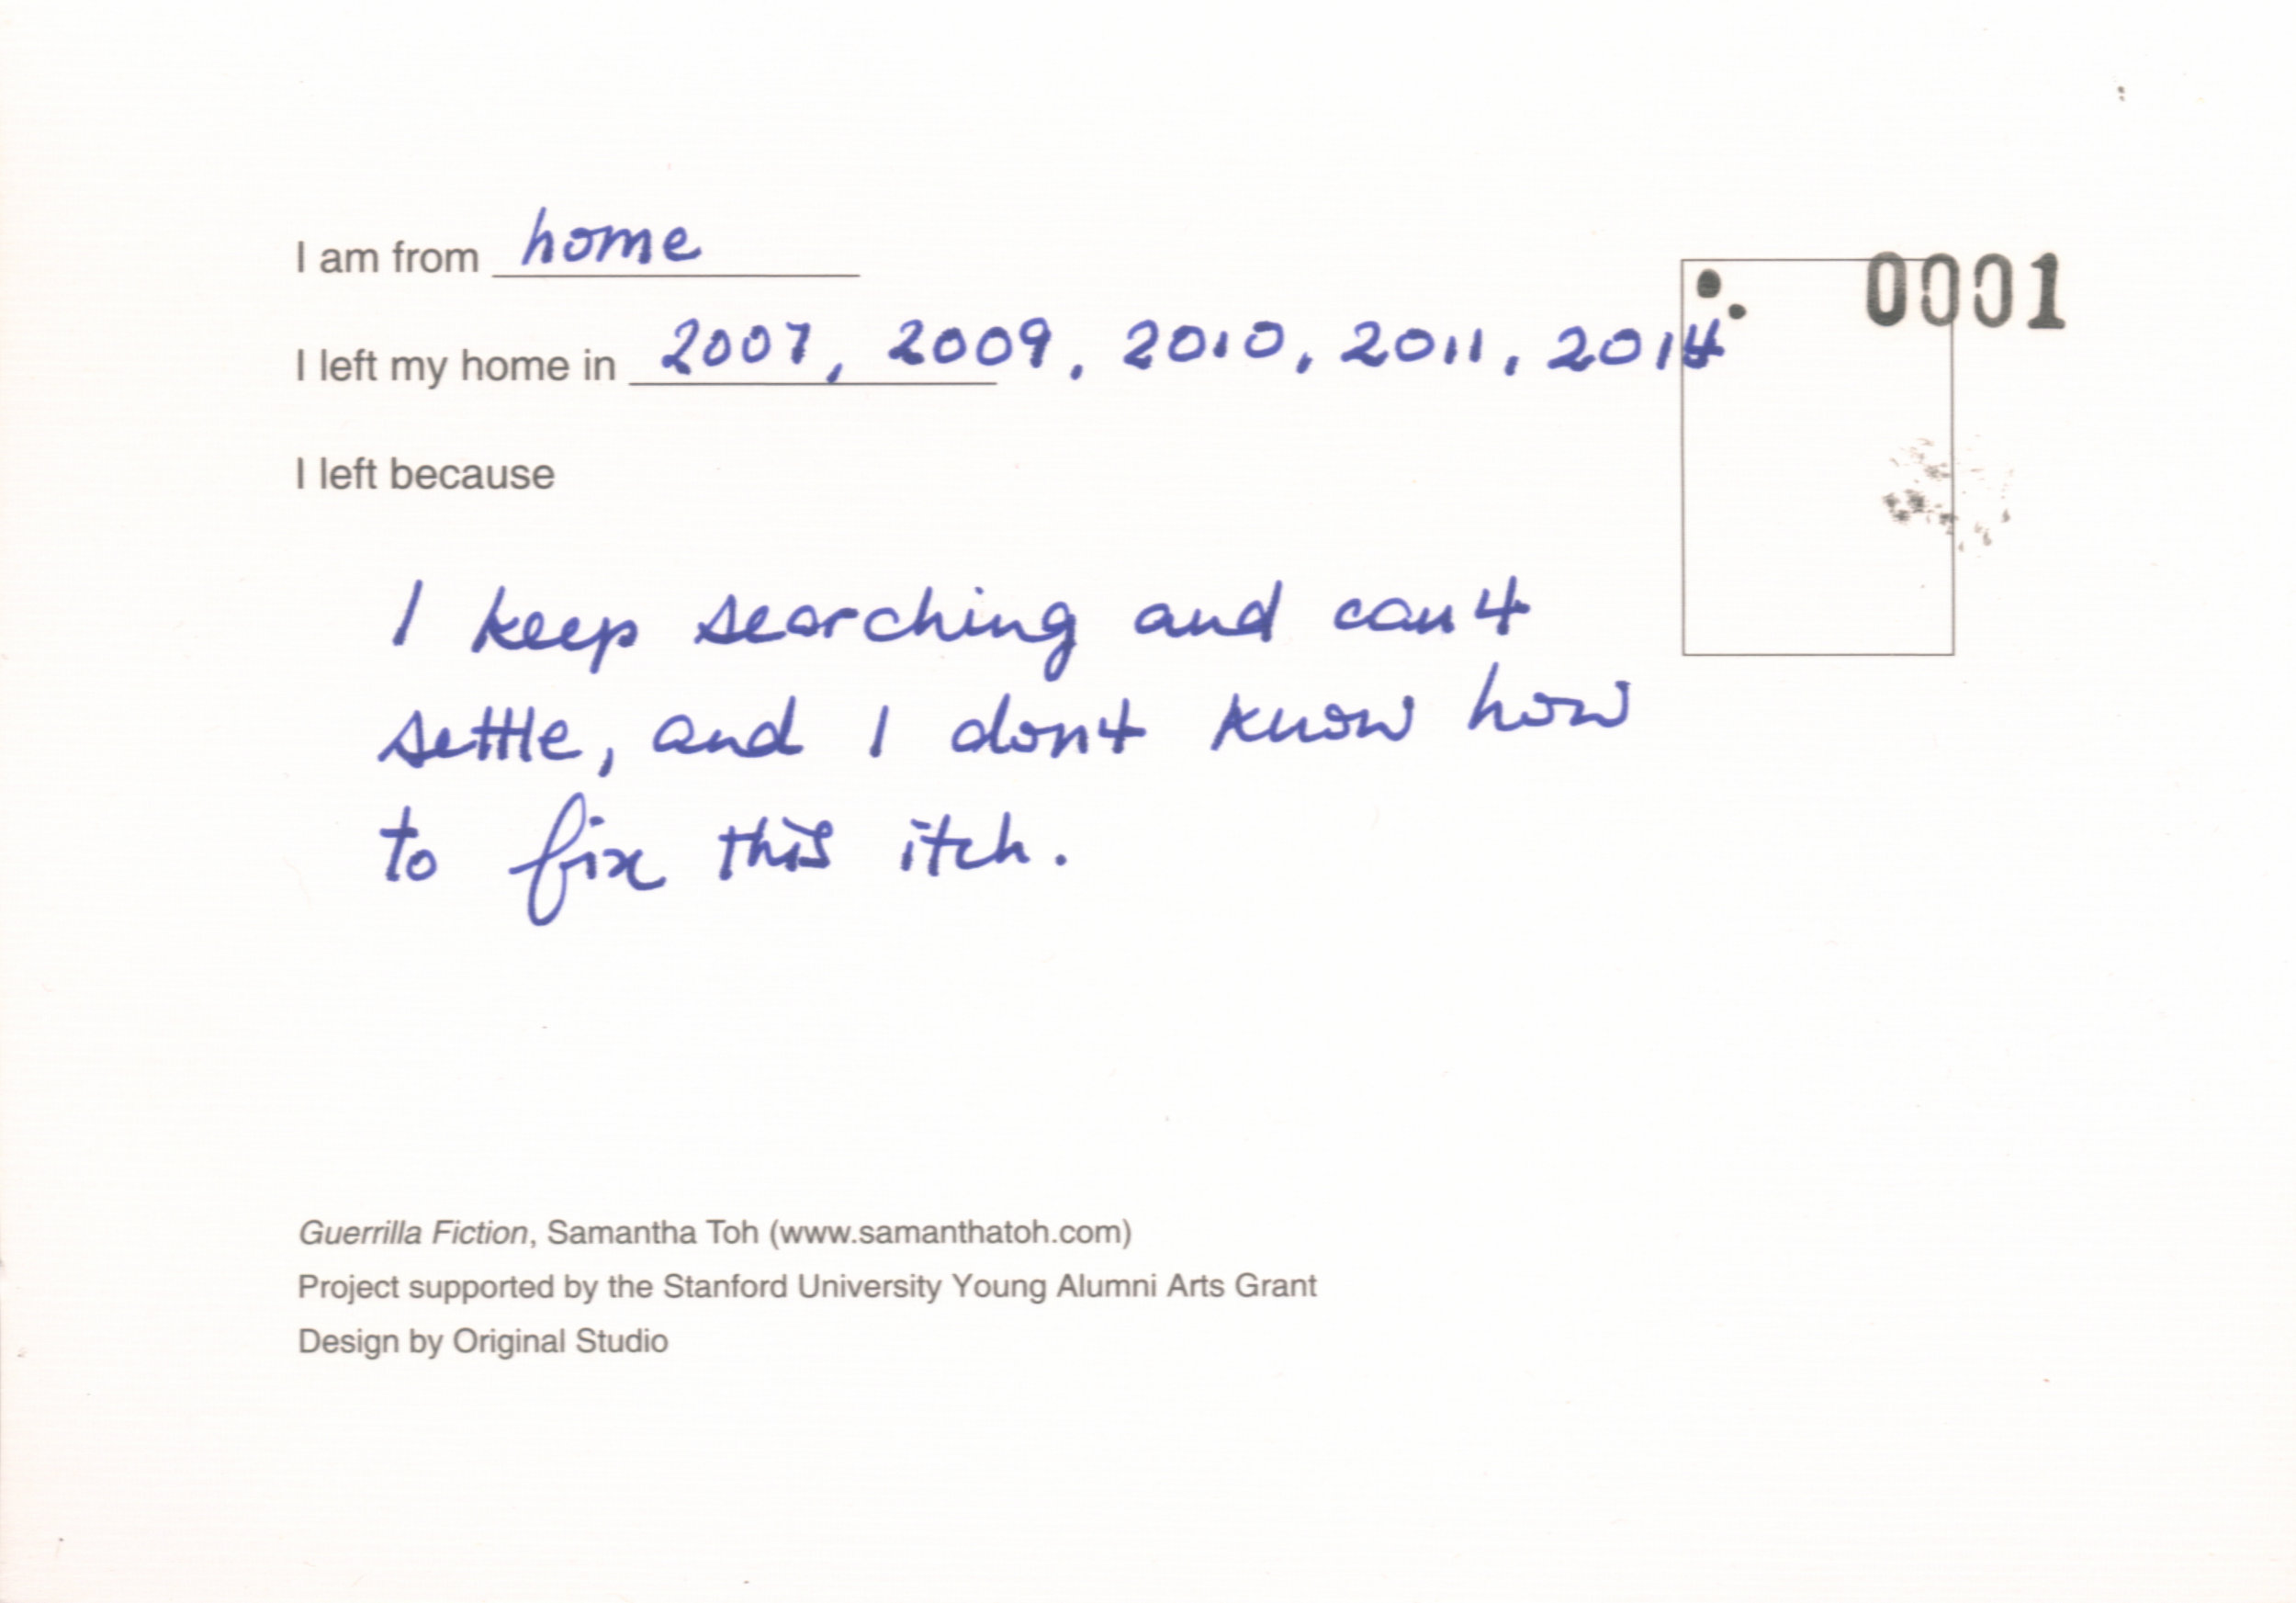 I am from home
I left my home in 2007, 2009, 2010, 2011, 2014
0001
I left because
I keep searching and can't
settle, and I don't know how
to fix this itch.
Guerrilla Fiction, Samantha Toh (www.samanthatoh.com)
Project supported by the Stanford University Young Alumni Arts Grant
Design by Original Studio